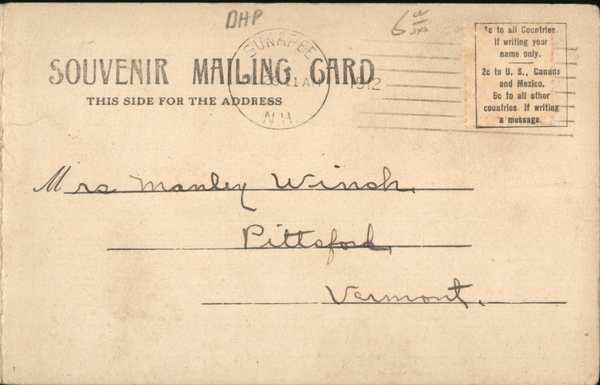 DHP
6 00
SUNAPEE
11 AM
1912
N.H.
SOUVENIR MAILING CARD
THIS SIDE FOR THE ADDRESS
1c to all Countries
If writing your
name only.
2c to U. S., Canada
and Mexico.
5c to all other
countries. If writing
a message.
Mrs Manley Winch,
Pittsford,
Vermont.